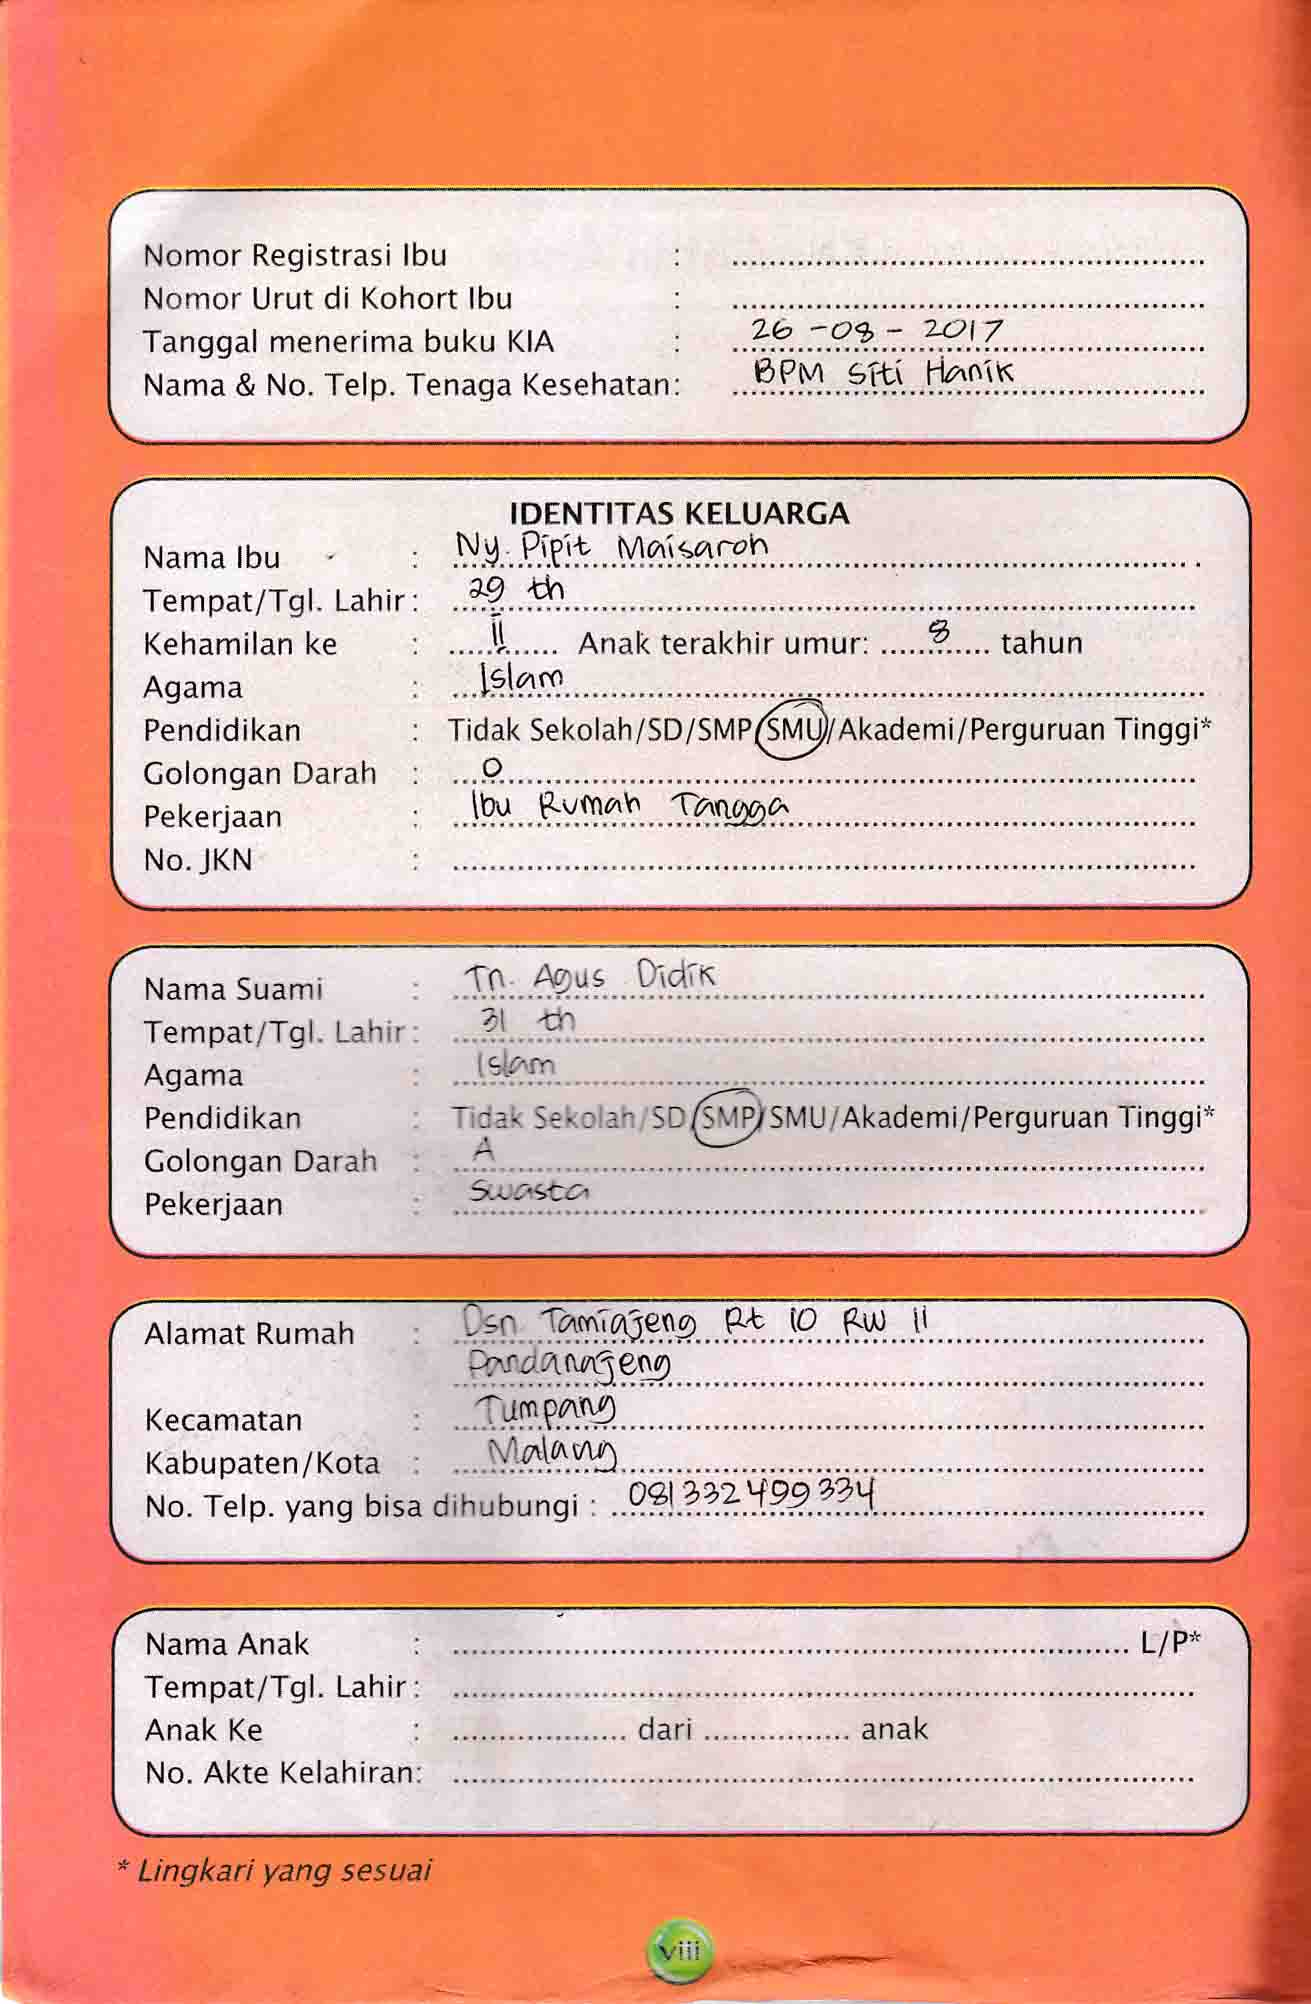 Nomor Registrasi Ibu :
Nomor Urut di Kohort Ibu :
Tanggal menerima buku KIA : 26 - 08 - 2017
Nama & No. Telp. Tenaga Kesehatan: BPM Siti Hanik
IDENTITAS KELUARGA
Nama Ibu : Ny. Pipit Maisaroh
Tempat/Tgl. Lahir : 29 th
Kehamilan ke : II Anak terakhir umur: 8 tahun
Agama : Islam
Pendidikan : Tidak Sekolah/SD/SMP/SMU/Akademi/Perguruan Tinggi*
Golongan Darah : O
Pekerjaan : Ibu Rumah Tangga
No. JKN :
Nama Suami : Tn. Agus Didik
Tempat/Tgl. Lahir : 31 th
Agama : Islam
Pendidikan : Tidak Sekolah/SD/SMP/SMU/Akademi/Perguruan Tinggi*
Golongan Darah : A
Pekerjaan : Swasta
Alamat Rumah : Dsn Tamiajeng Rt 10 RW 11
Pandanajeng
Kecamatan : Tumpang
Kabupaten/Kota : Malang
No. Telp. yang bisa dihubungi : 081332499334
Nama Anak : L/P*
Tempat/Tgl. Lahir :
Anak Ke : dari anak
No. Akte Kelahiran:
* Lingkari yang sesuai
viii